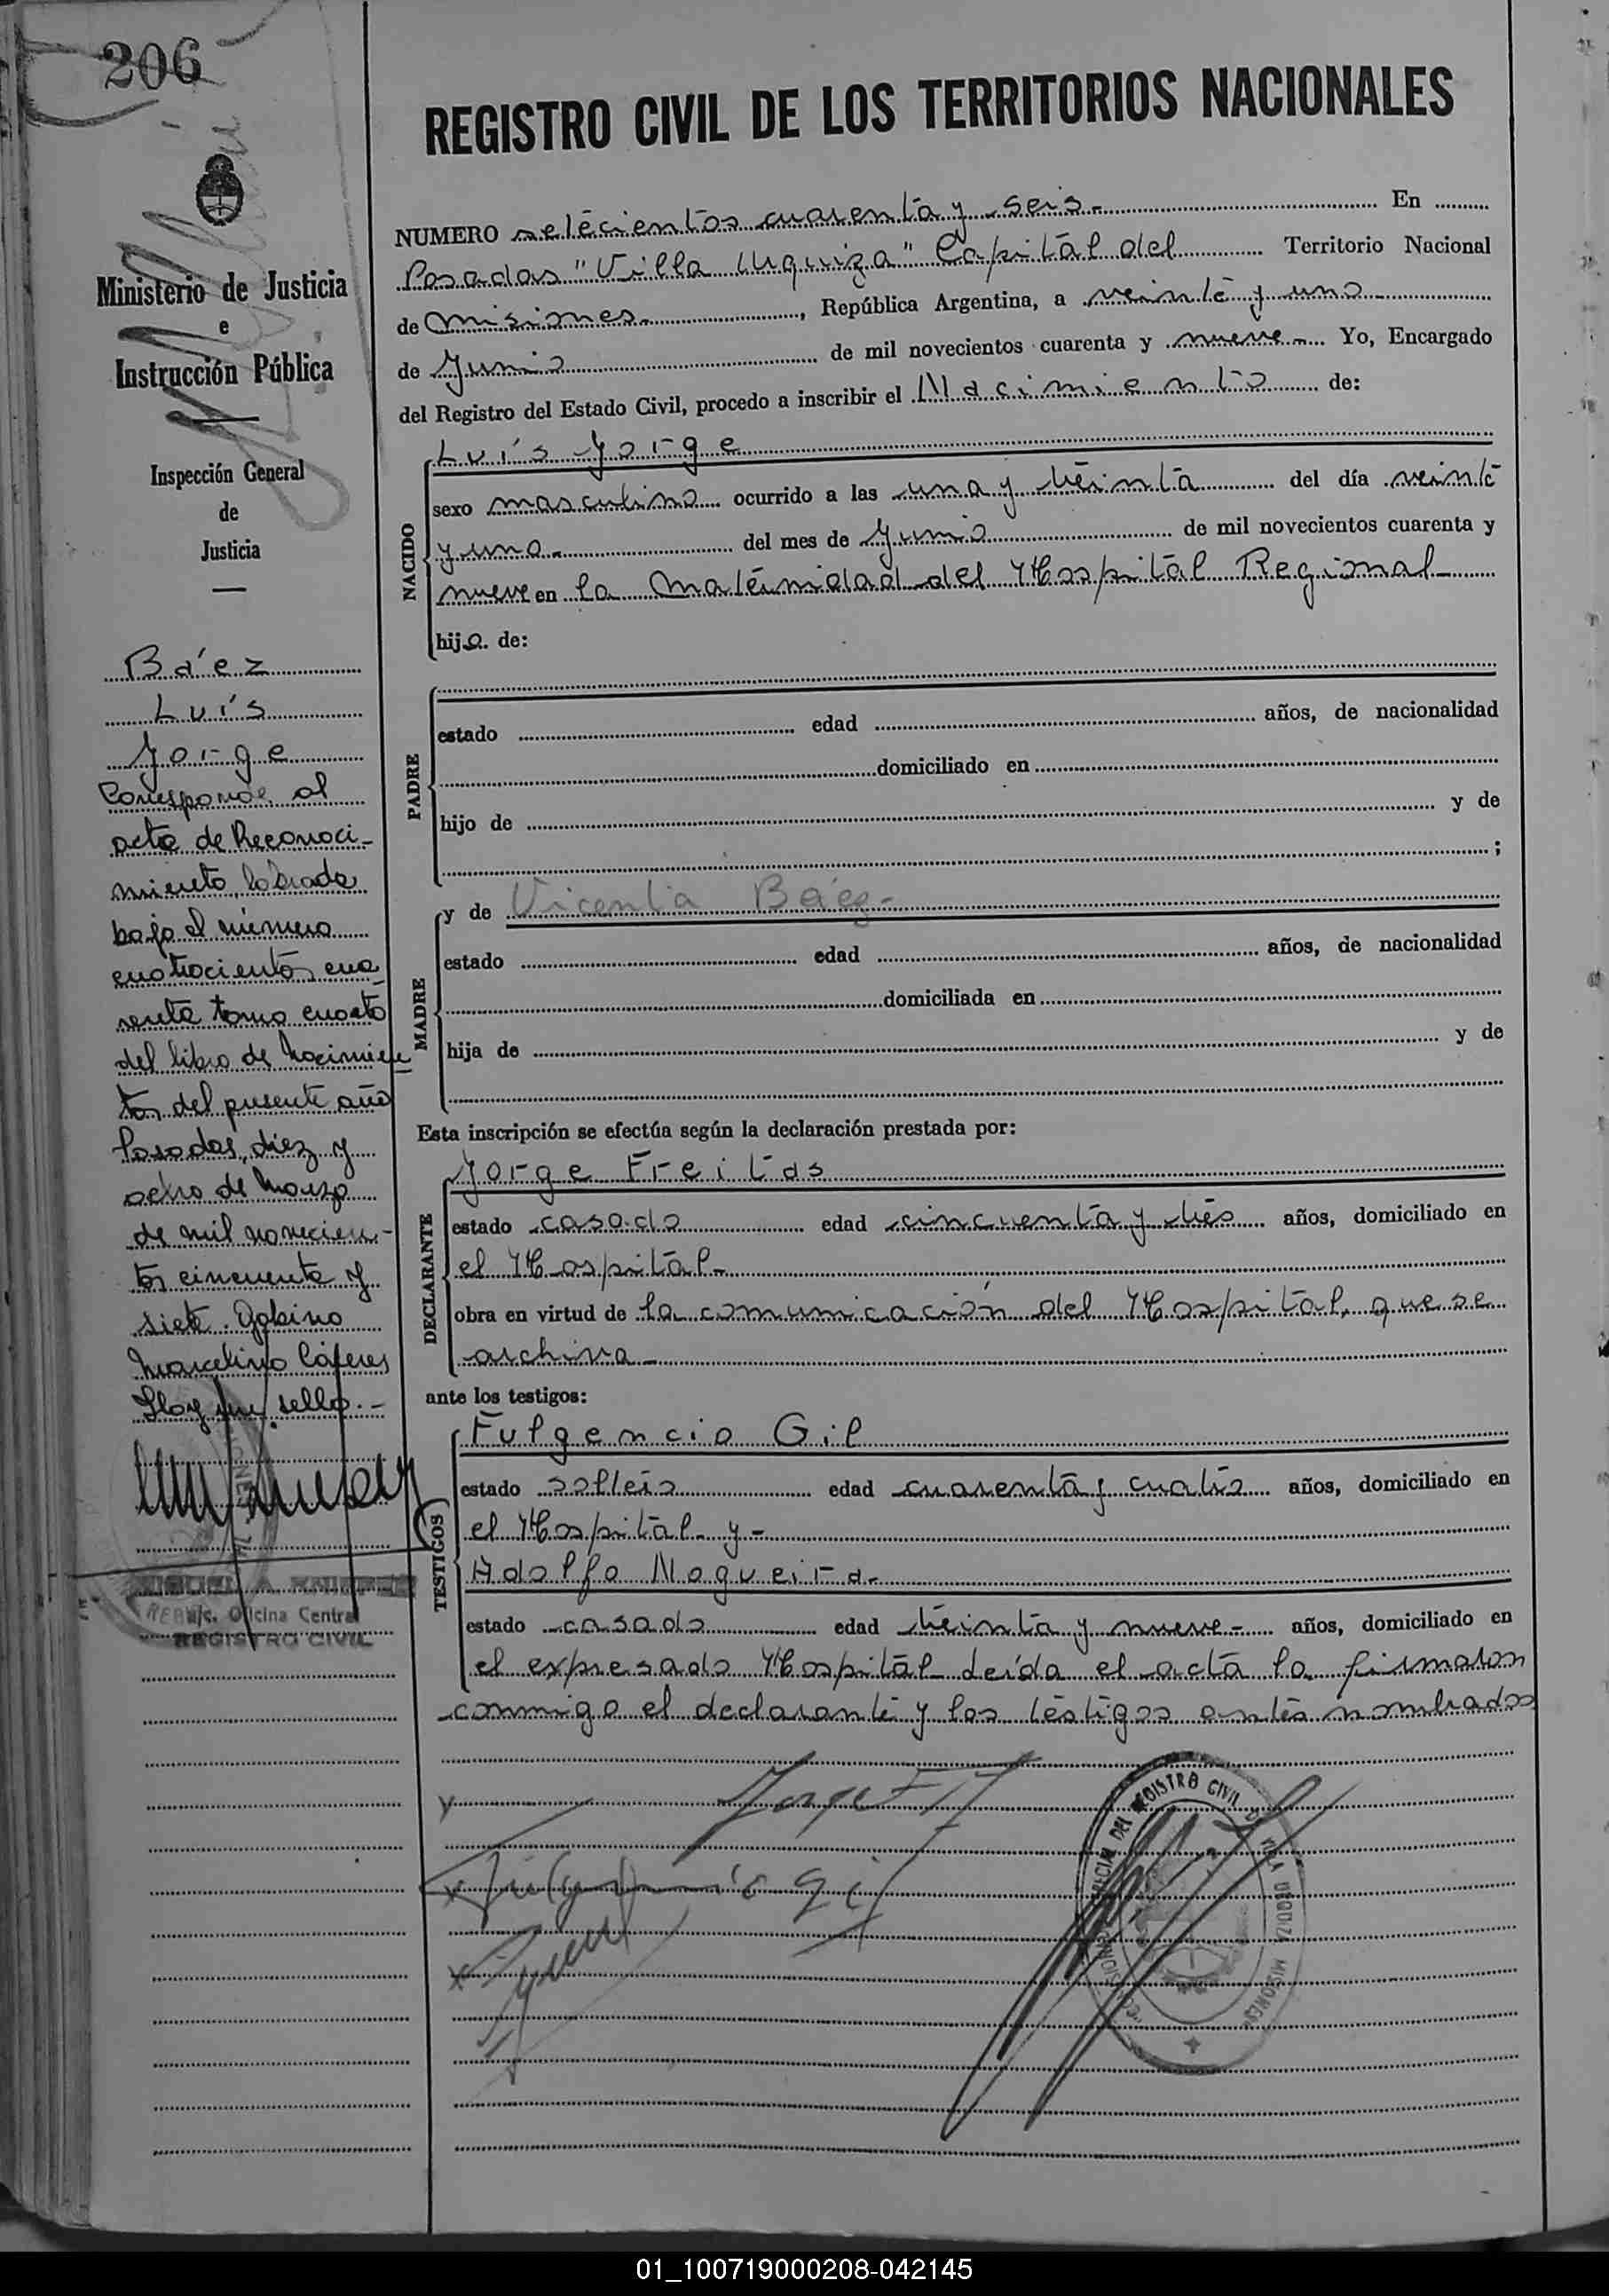 206
REGISTRO CIVIL DE LOS TERRITORIOS NACIONALES
Ministerio de Justicia
e
Instrucción Pública
Inspección General
de
Justicia
Báez
Luís
Jorge
Corresponde al
acta de Reconoci-
miento, labrada
bajo el número
cuatrocientos cua
renta tomo cuarto
del libro de Nacimien
tos del presente año
Posadas, diez y
ocho de Marzo
de mil novecien-
tos cincuenta y
siete. Gabino
Marcelino Cáferes
Hay un sello.-
Oficina Central
REGISTRO CIVIL
NUMERO setecientos cuarenta y seis.- En
Posadas "Villa Urquiza" Capital del Territorio Nacional
de Misiones.-, República Argentina, a veinte y uno
de Junio de mil novecientos cuarenta y nueve.- Yo, Encargado
del Registro del Estado Civil, procedo a inscribir el Nacimiento de:
NACIDO
Luís Jorge
sexo masculino ocurrido a las una y treinta del día veinte
y uno.- del mes de Junio de mil novecientos cuarenta y
nueve en la Maternidad del Hospital Regional
hijo de:
PADRE
estado edad años, de nacionalidad
domiciliado en
hijo de y de
;
MADRE
y de Vicenta Báez-
estado edad años, de nacionalidad
domiciliada en
hija de y de
Esta inscripción se efectúa según la declaración prestada por:
DECLARANTE
Jorge Freitas
estado casado edad cincuenta y tres años, domiciliado en
el Hospital-
obra en virtud de la comunicación del Hospital, que se
archiva-
ante los testigos:
TESTIGOS
Fulgencio Gil
estado soltero edad cuarenta y cuatro años, domiciliado en
el Hospital- y-
Adolfo Nogueira-
estado casado edad treinta y nueve- años, domiciliado en
el expresado Hospital- Leída el acta la firmaron
conmigo el declarante y los testigos antes nombrados
REGISTRO CIVIL
VILLA URQUIZA MISIONES
01_100719000208-042145